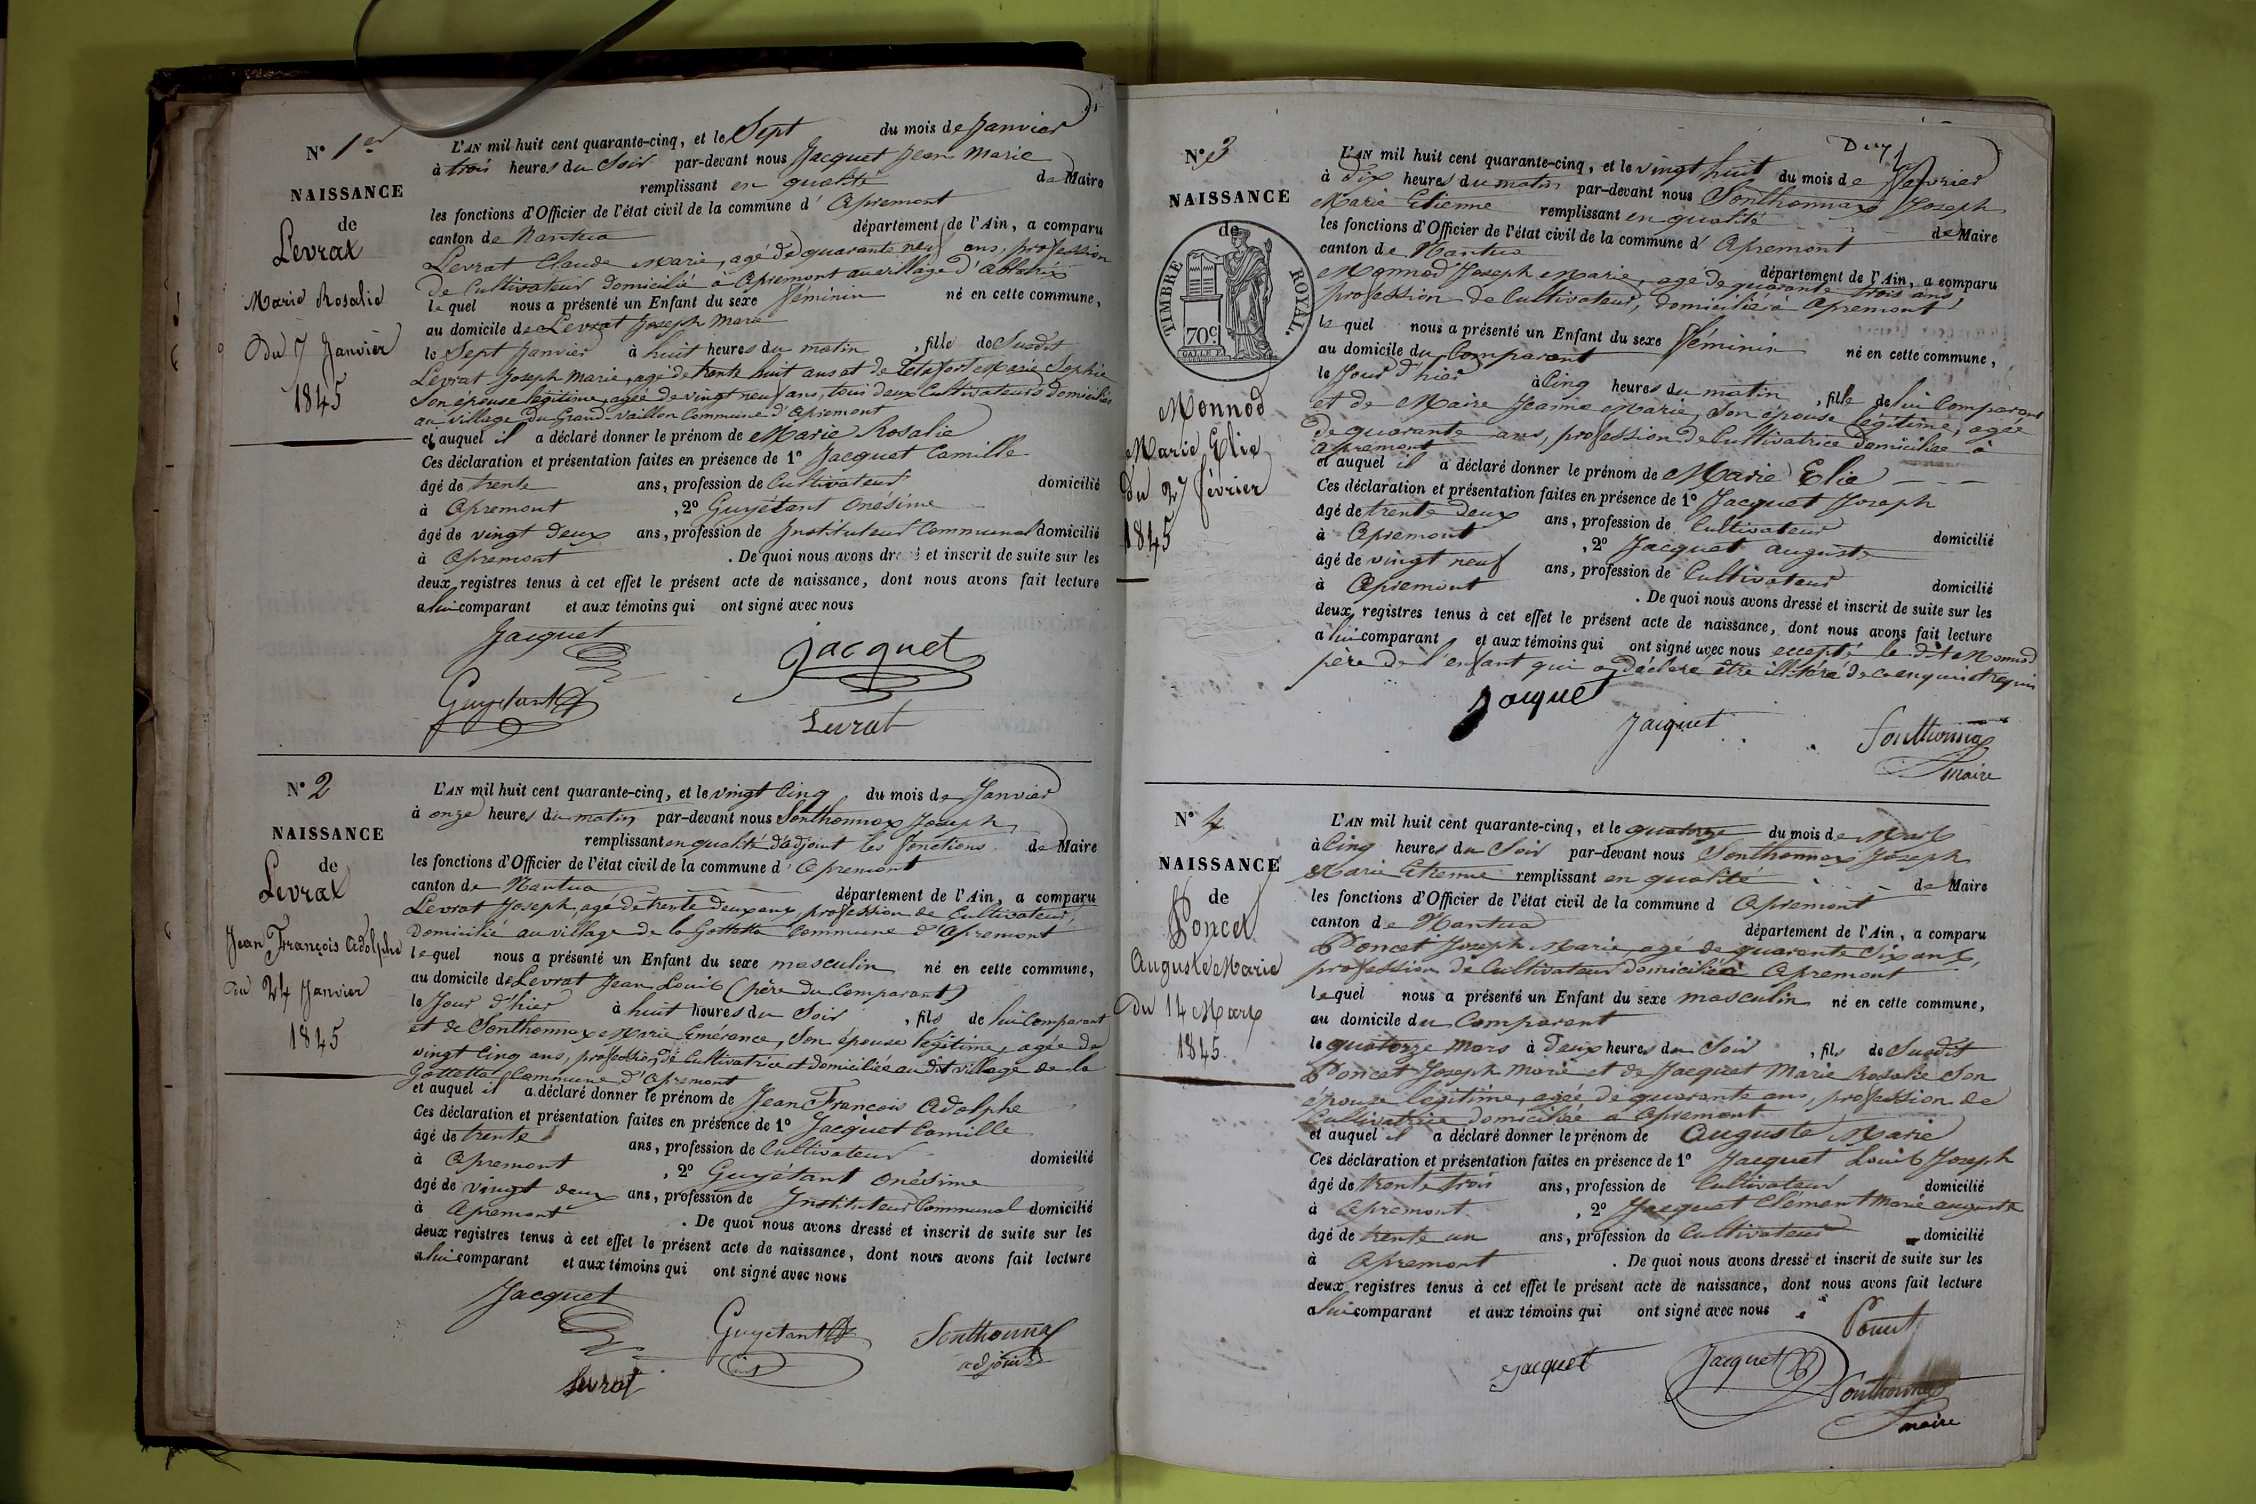 N° 1er
NAISSANCE
de
Levrat
Marie Rosalie
Du 7 Janvier
1845
L'AN mil huit cent quarante-cinq, et le Sept du mois de Janvier
à trois heures du Soir par-devant nous Jacquet Jean Marie
remplissant en qualité de Maire
les fonctions d'Officier de l'état civil de la commune d' Apremont
canton de Nantua département de l'Ain, a comparu
Levrat Claude Marie, agé de quarante neuf ans, profession
De Cultivateur domicilié à Apremont au village d'
lequel nous a présenté un Enfant du sexe féminin né en cette commune,
au domicile de Levrat Joseph Marie
le Sept Janvier à huit heures du matin, fille de Susdit
Levrat Joseph Marie, agé de trente huit ans et de Marie Sophie
Son épouse légitime, agée de vingt neuf ans, tous deux Cultivateurs domiciliés
au village du Grand-Vaillon Commune d'Apremont
et auquel il a déclaré donner le prénom de Marie Rosalie
Ces déclaration et présentation faites en présence de 1° Jacquet Camille
âgé de trente ans, profession de Cultivateur domicilié
à Apremont, 2° Guyétant Onésime
âgé de vingt deux ans, profession de Instituteur Communal domicilié
à Apremont. De quoi nous avons dressé et inscrit de suite sur les
deux registres tenus à cet effet le présent acte de naissance, dont nous avons fait lecture
a lui comparant et aux témoins qui ont signé avec nous
Jacquet Jacquet
Guyetant Levrat
N° 2
NAISSANCE
de
Levrat
Jean François Adolphe
du 24 Janvier
1845
L'AN mil huit cent quarante-cinq, et le vingt Cinq du mois de Janvier
à onze heures du matin par-devant nous Sonthonnax Joseph
remplissant en qualité d'adjoint les fonctions de Maire
les fonctions d'Officier de l'état civil de la commune d' Apremont
canton de Nantua département de l'Ain, a comparu
Levrat Joseph, agé de trente deux ans, profession de Cultivateur,
Domicilié au village de la Gottetta Commune d'Apremont
lequel nous a présenté un Enfant du sexe masculin né en cette commune,
au domicile de Levrat Jean Louis (père du Comparant)
le Jour d'hier à huit heures du Soir, fils de lui Comparant
et de Sonthonnax Marie Emérance, Son épouse légitime, agée de
vingt Cinq ans, profession de Cultivatrice et domiciliée au dit village de la
Gottetta Commune d'Apremont
et auquel il a déclaré donner le prénom de Jean François Adolphe
Ces déclaration et présentation faites en présence de 1° Jacquet Camille
âgé de trente ans, profession de Cultivateur domicilié
à Apremont, 2° Guyétant Onésime
âgé de vingt deux ans, profession de Instituteur Communal domicilié
à Apremont. De quoi nous avons dressé et inscrit de suite sur les
deux registres tenus à cet effet le présent acte de naissance, dont nous avons fait lecture
a lui comparant et aux témoins qui ont signé avec nous
Jacquet
Guyetant Sonthonnax
adjoint
Levrat
N° 3
NAISSANCE
de
TIMBRE ROYAL.
70c
Monnod
Marie Elie
du 27 février
1845
L'AN mil huit cent quarante-cinq, et le vingt huit du mois de février
à Dix heures du matin par-devant nous Sonthonnax Joseph
Marie Etienne remplissant en qualité de Maire
les fonctions d'Officier de l'état civil de la commune d' Apremont
canton de Nantua département de l'Ain, a comparu
Monnod Joseph Marie, agé de quarante trois ans,
profession de Cultivateur, domicilié à Apremont
lequel nous a présenté un Enfant du sexe féminin né en cette commune,
au domicile du Comparant
le Jour d'hier à Cinq heures du matin, fille de lui Comparant
et de Maire Jeanne Marie, Son épouse légitime, agée
de quarante ans, profession de Cultivatrice domiciliée à
Apremont
et auquel il a déclaré donner le prénom de Marie Elie
Ces déclaration et présentation faites en présence de 1° Jacquet Joseph
âgé de trente deux ans, profession de Cultivateur domicilié
à Apremont, 2° Jacquet Auguste
âgé de vingt neuf ans, profession de Cultivateur domicilié
à Apremont. De quoi nous avons dressé et inscrit de suite sur les
deux registres tenus à cet effet le présent acte de naissance, dont nous avons fait lecture
a lui comparant et aux témoins qui ont signé avec nous excepté le dit Monnod
père de l'enfant qui a déclaré être illitéré de ce enquis et requis
Jacquet
Jacquet Sonthonnax
maire
N° 4
NAISSANCE
de
Poncet
Auguste Marie
du 14 Mars
1845
L'AN mil huit cent quarante-cinq, et le quatorze du mois de Mars
à Cinq heures du Soir par-devant nous Sonthonnax Joseph
Marie Etienne remplissant en qualité de Maire
les fonctions d'Officier de l'état civil de la commune d Apremont
canton de Nantua département de l'Ain, a comparu
Poncet Joseph Marie, agé de quarante Six ans,
profession de Cultivateur domicilié à Apremont
lequel nous a présenté un Enfant du sexe masculin né en cette commune,
au domicile du Comparant
le quatorze Mars à Deux heures du Soir, fils de Susdit
Poncet Joseph Marie et de Jacquet Marie Rosalie Son
épouse légitime, agée de quarante ans, profession de
Cultivatrice domiciliée à Apremont
et auquel il a déclaré donner le prénom de Auguste Marie
Ces déclaration et présentation faites en présence de 1° Jacquet Louis Joseph
âgé de trente trois ans, profession de Cultivateur domicilié
à Apremont, 2° Jacquet Clément Marie Auguste
âgé de trente un ans, profession de Cultivateur domicilié
à Apremont. De quoi nous avons dressé et inscrit de suite sur les
deux registres tenus à cet effet le présent acte de naissance, dont nous avons fait lecture
a lui comparant et aux témoins qui ont signé avec nous
Poncet
Jacquet Jacquet Sonthonnax
maire